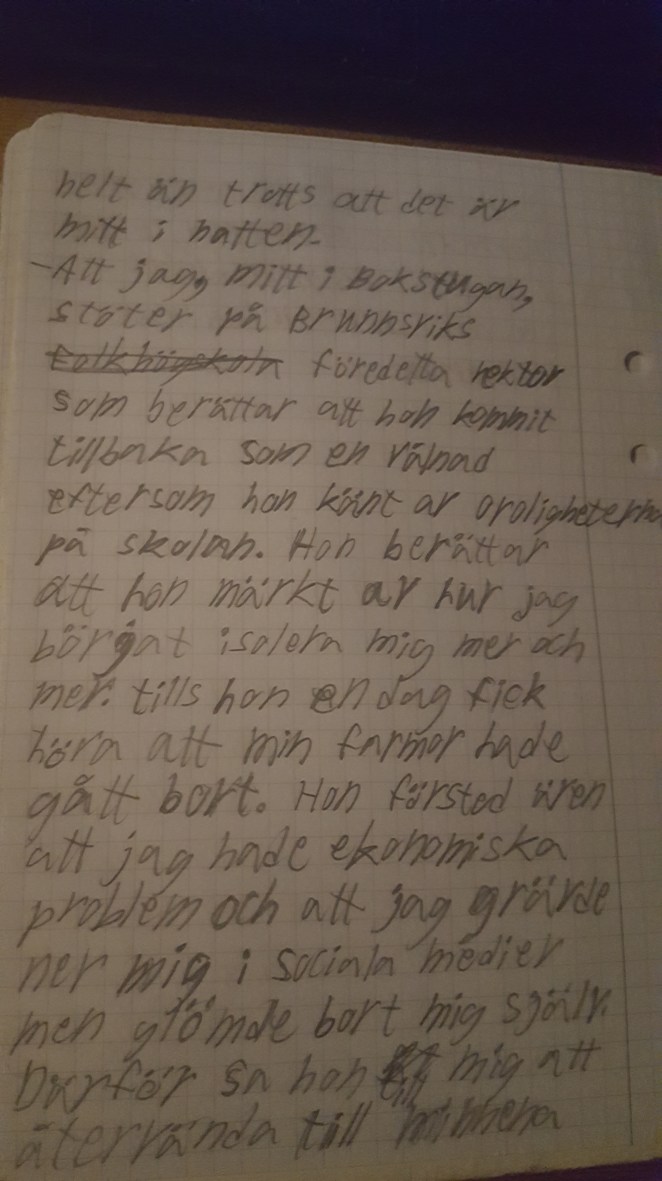 helt än trotts att det är
mitt i natten.
- Att jag, mitt i Bokstugan,
stöter på Brunnsviks
folkhögskola föredetta rektor
som berättar att hon kommit
tillbaka som en vålnad
eftersom hon känt av oroligheterna
på skolan. Hon berättar
att hon märkt av hur jag
börjat isolera mig mer och
mer. tills hon en dag fick
höra att min farmor hade
gått bort. Hon förstod även
att jag hade ekonomiska
problem och att jag grävde
ner mig i sociala medier
men glömde bort mig själv.
Därför sa hon till mig att
återvända till minnena